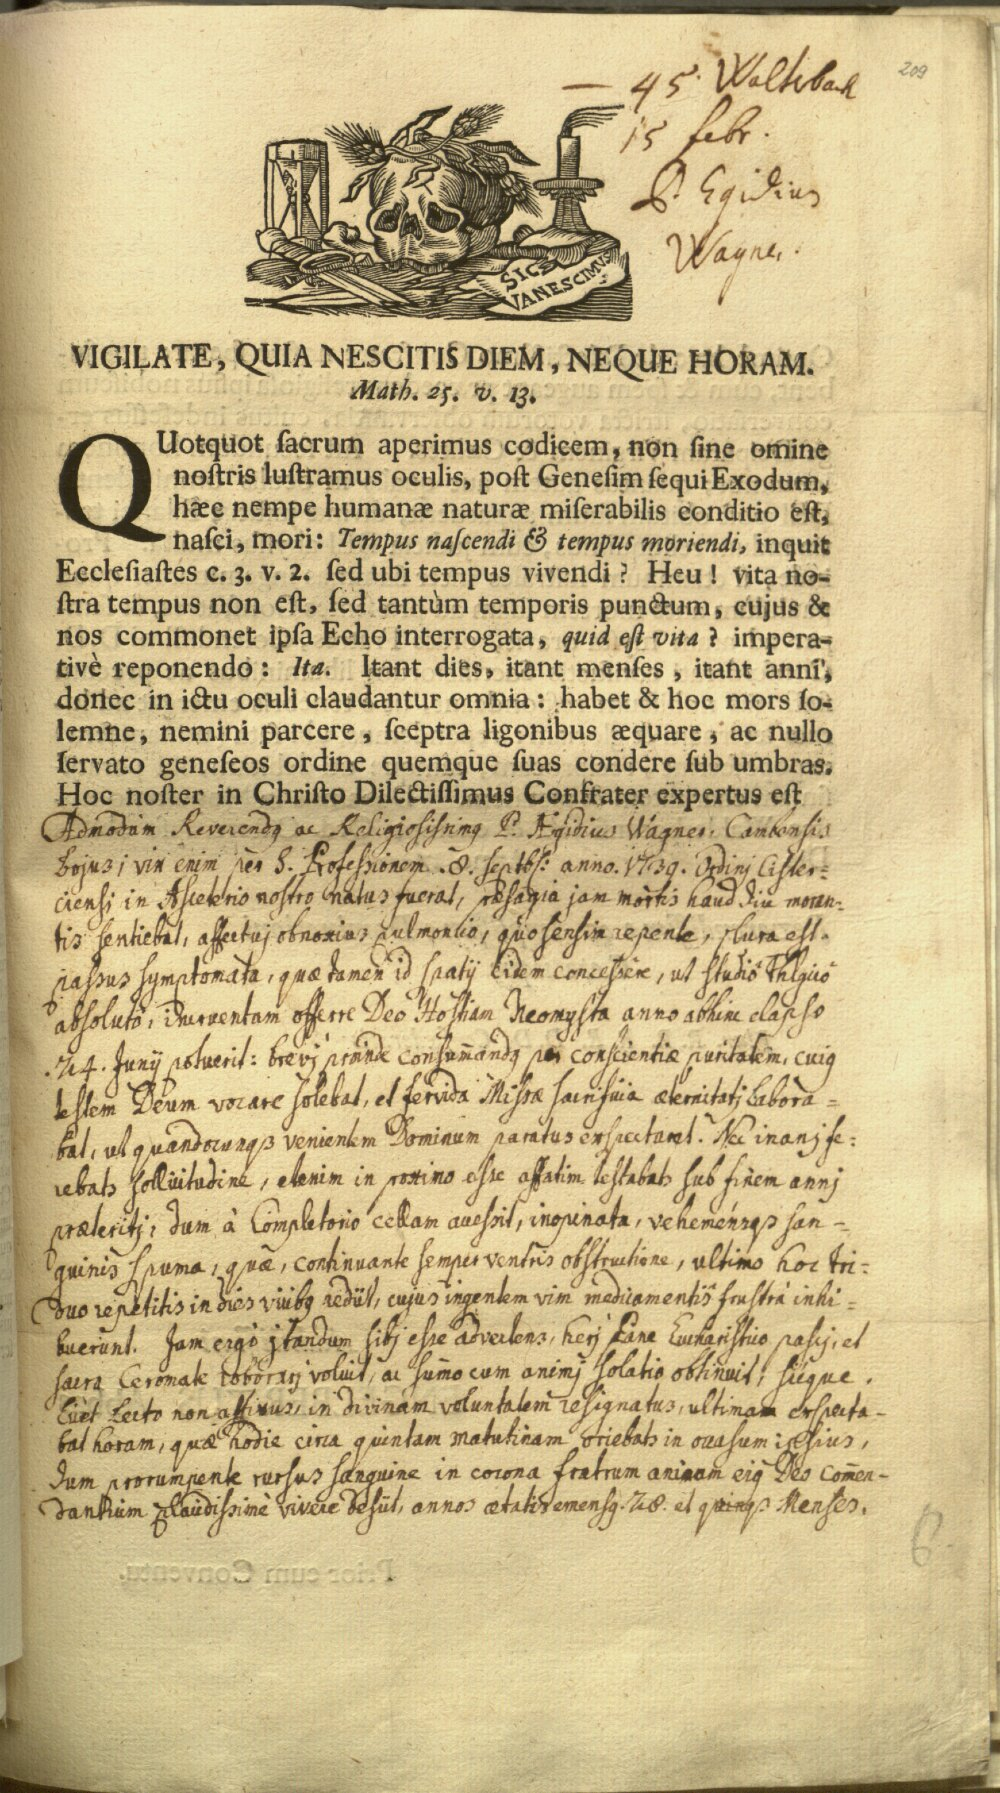 209
— 45. Waltsback
15 febr.
P. Egidius
Wagner.
SIC
VANESCIMUS
VIGILATE, QUIA NESCITIS DIEM, NEQUE HORAM.
Math. 25. v. 13.
QUotquot ſacrum aperimus codicem, non ſine omine
noſtris luſtramus oculis, poſt Geneſim ſequi Exodum,
hæc nempe humanæ naturæ miſerabilis conditio eſt,
naſci, mori: Tempus naſcendi & tempus moriendi, inquit
Eccleſiaſtes c. 3. v. 2. ſed ubi tempus vivendi? Heu! vita no-
ſtra tempus non eſt, ſed tantùm temporis punctum, cujus &
nos commonet ipſa Echo interrogata, quid eſt vita? impera-
tivè reponendo: Ita. Itant dies, itant menſes, itant anni,
donec in ictu oculi claudantur omnia: habet & hoc mors ſo-
lemne, nemini parcere, ſceptra ligonibus æquare, ac nullo
ſervato geneſeos ordine quemque ſuas condere ſub umbras.
Hoc noſter in Chriſto Dilectiſſimus Confrater expertus eſt
Admodum Reverendq ac Religiosissimq P. Ægidius Wagner, Cambensis
bojus; vix enim per S. Professionem .8. septbs: anno. 1739. Ordinj Cister=
ciensi in Asceterio nostro natus fuerat, præsagia jam mortis haud diu moran-
tis sentiebat, affectuj obnoxius pulmonico, quo sensim repente, plura est
passus symptomata, quæ tamen id spatij eidem concessere, ut studio Thlgico
absoluto, incruentam offerre Deo Hostiam Neomysta anno abhinc elapso
.24. Junij potuerit: brevj proinde consumandq per conscientiæ puritatem, cuiq
testem Deum vocare solebat, et fervida Missæ sacrificia æternitatj labora=
bat, ut quandocunqs venientem Dominum paratus exspectaret. Nec inanj fe=
rebats sollicitudine, etenim in proximo esse affatim testabats sub finem annj
præteritj, dum à Completorio cellam accessit, inopinata, vehemensqs san=
guinis spuma, quæ, continuante semper ventris obstructione, ultimo hoc tri=
duo repetitis in dies vicibq rediit, cujus ingentem vim medicamentis frustrà inhi=
buerunt. Jam ergo sibj esse advertens, herj Pane Eucharistico pascj, et
sacra Ceromate roborarj voluit, ac sumo cum animj solatio obtinuit, sicque
licet Lecto non affixus, in divinam voluntatem resignatus, ultimam exspecta-
bat horam, quæ hodie circa quintam matutinam oriebats in occasum ipsius,
dum prorumpente rursus sanguine in corona fratrum animam eiq Deo Comen-
dantium placidissimè vivere desiit, annos ætatis emensq .28. et quinqs Menses.